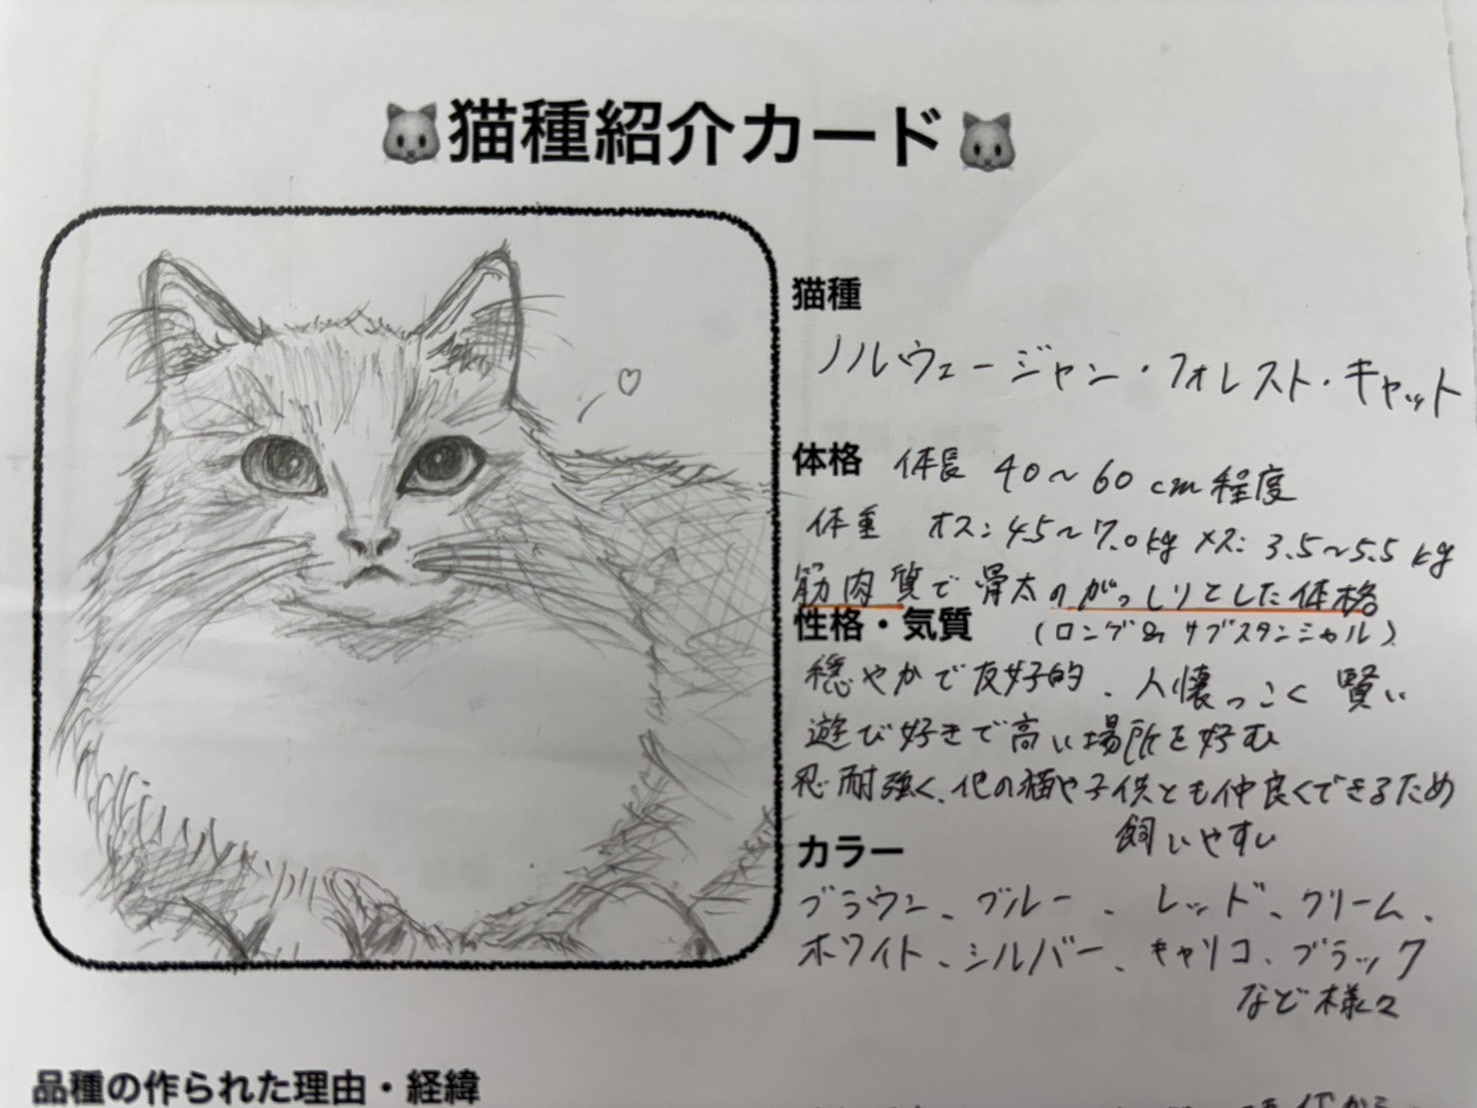 猫種紹介カード
猫種
ノルウェージャン・フォレスト・キャット
体格 体長 40～60cm程度
体重 オス:4.5～7.0kg メス:3.5～5.5kg
筋肉質で骨太のがっしりとした体格
(ロング&サブスタンシャル)
性格・気質
穏やかで友好的、人懐っこく賢い
遊び好きで高い場所を好む
忍耐強く、他の猫や子供とも仲良くできるため
飼いやすい
カラー
ブラウン、ブルー、レッド、クリーム、
ホワイト、シルバー、キャリコ、ブラック
など様々
品種の作られた理由・経緯